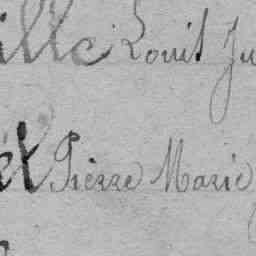 ille Louis Ju
et Pierre Marie